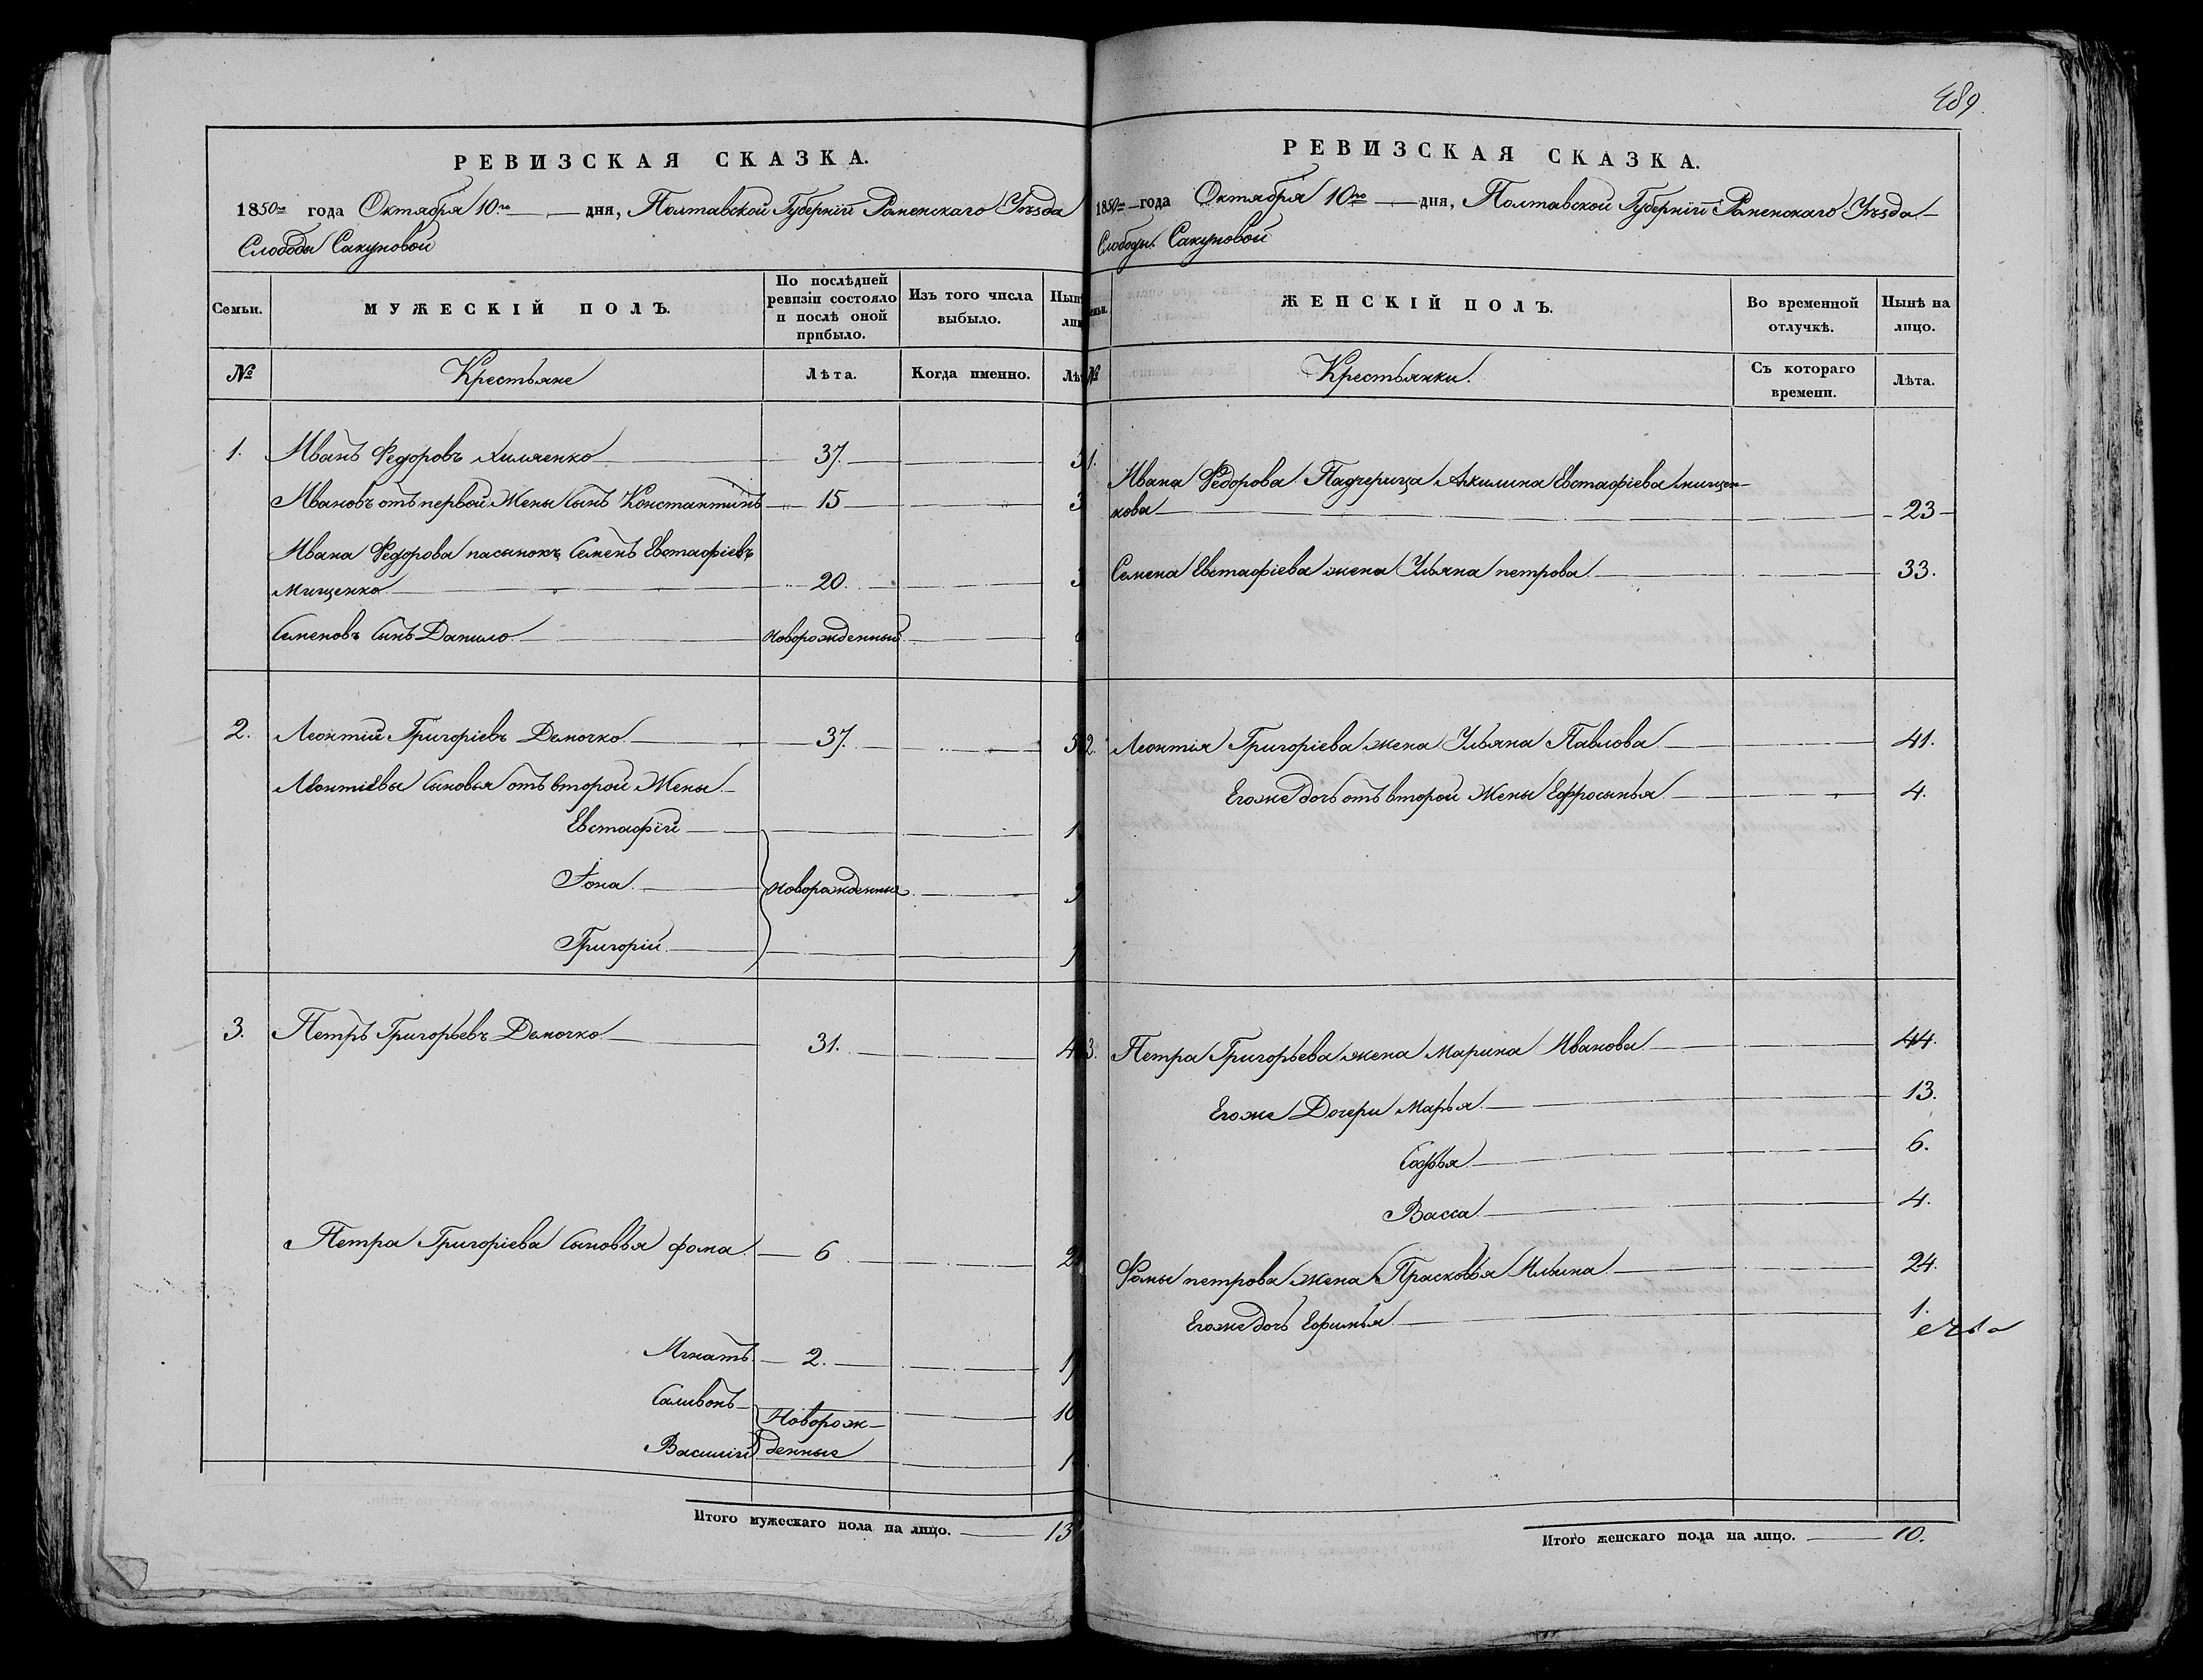 РЕВИЗСКАЯ СКАЗКА.
1850го года Октября 10го дня, Полтавской Губерніи Роменскаго Уѣзда
Слободы Сакуновой
Семьи.
МУЖЕСКІЙ ПОЛЪ.
По послѣдней ревизіи состояло и послѣ оной прибыло.
Изъ того числа выбыло.
№
Крестьяне
Лѣта.
Когда именно.
1. Иванъ Федоровъ 37.
Ивановъ отъ первой Жены сынъ Константинъ 15
Ивана Федорова пасынокъ Семенъ Евстафіевъ
Мищенко 20.
Семеновъ сынъ Данило новорожденный
2. Леонтій Григоріевъ Демочко 37.
Леонтіевы сыновья отъ второй Жены
Евстафій
Іона новорожденные
Григорій
3. Петръ Григорьевъ Демочко 31.
Петра Григоріева сыновья фома 6
Игнатъ 2.
Саливонъ Новорож-
Василій денные
Итого мужескаго пола на лицо. 13
489.
РЕВИЗСКАЯ СКАЗКА.
1850го года Октября 10го дня, Полтавской Губерніи Роменскаго Уѣзда
Слободы Сакуновой
ЖЕНСКІЙ ПОЛЪ.
Во временной отлучкѣ.
Нынѣ на лицо.
№
Крестьянки.
Съ котораго времени.
Лѣта.
1.
Ивана Федорова Падчерица Акилина Евстафіева мищен-
кова 23
Семена Евстафіева жена Ульяна петрова 33.
2. Леонтія Григоріева жена Ульяна Павлова 41.
Егоже дочь отъ второй Жены Ефросинья 4.
3. Петра Григорьева жена Марина Иванова 44.
Егоже Дочери Марья 13.
Софья 6.
Васса 4.
Фомы петрова жена Прасковья Ильина 24.
Егоже дочь Ефимья 1.
Итого женскаго пола на лицо. 10.